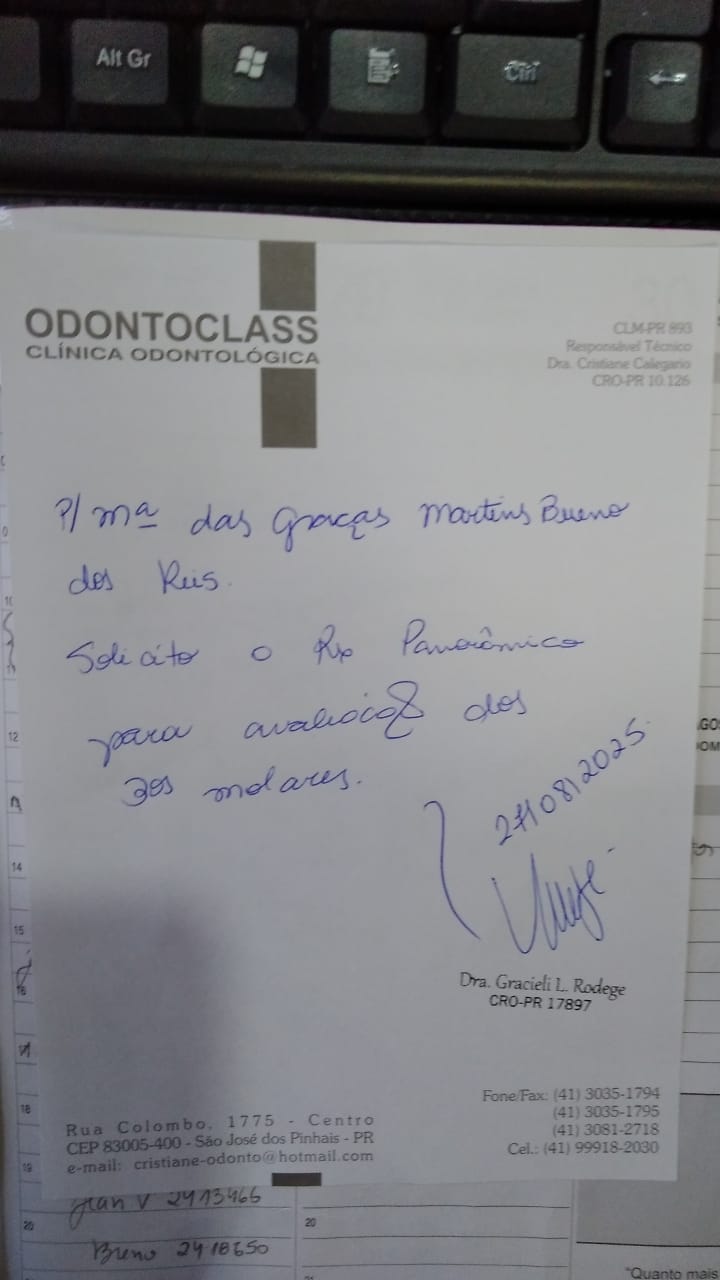 Alt Gr
Ctrl
ODONTOCLASS
CLÍNICA ODONTOLÓGICA
CLM-PR 893
Responsável Técnico
Dra. Cristiane Calegario
CRO-PR 10.126
P/ Mª das Graças Martins Bueno
dos Reis.
Solicito o Rx Panorâmico
para avaliação dos
3os molares.
27/08/2025
Dra. Gracieli L. Rodege
CRO-PR 17897
Rua Colombo, 1775 - Centro
CEP 83005-400 - São José dos Pinhais - PR
e-mail: cristiane-odonto@hotmail.com
Fone/Fax: (41) 3035-1794
(41) 3035-1795
(41) 3081-2718
Cel.: (41) 99918-2030
12
14
15
18
19
20
Jean V 2413466
Breno 2418650
20
"Quanto mais